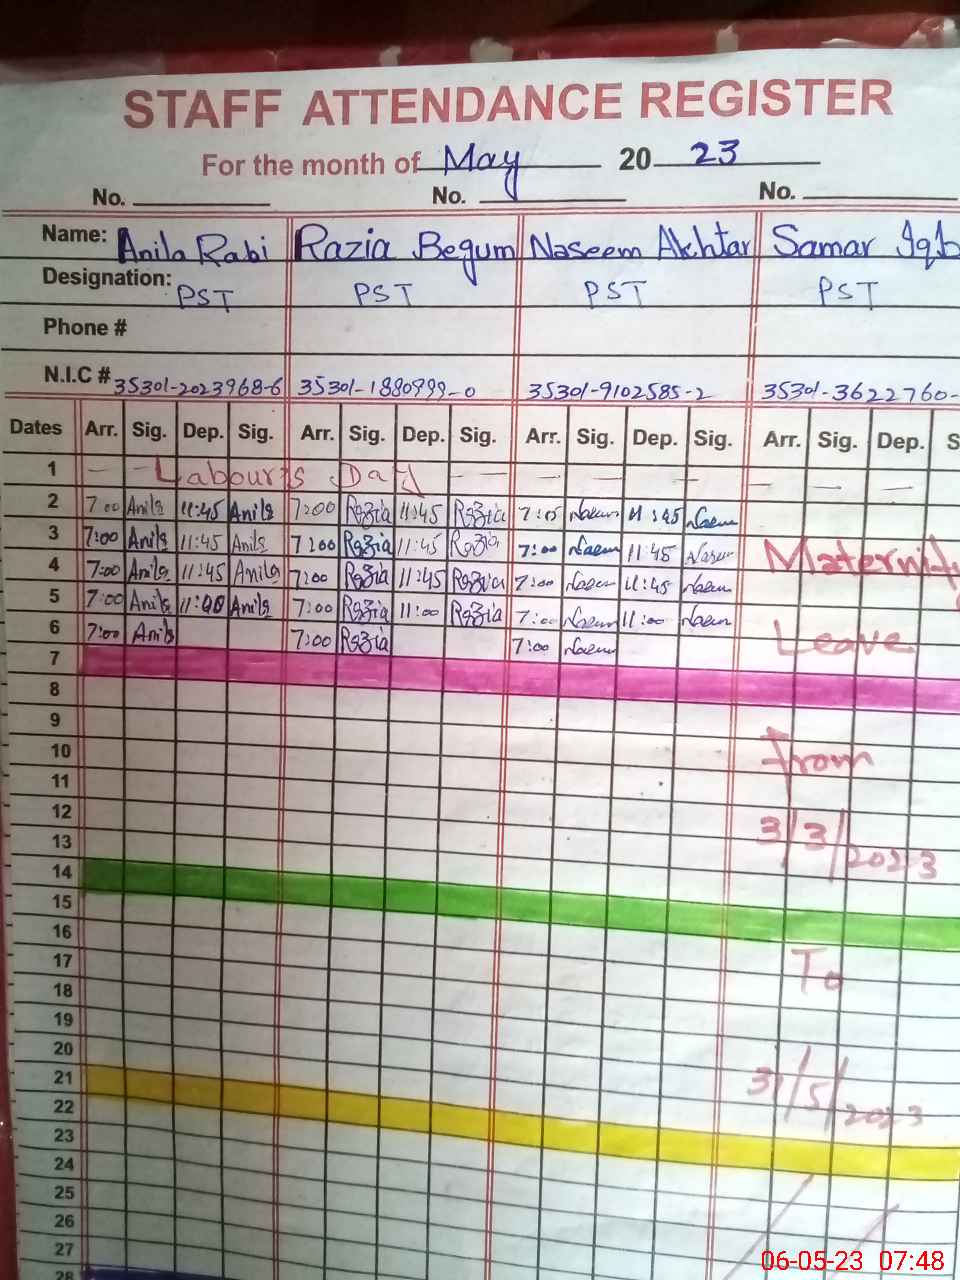 STAFF ATTENDANCE REGISTER
For the month of May 2023
No. No. No.
Name: Anila Rabi Razia Begum Naseem Akhtar Samar Iqb
Designation: PST PST PST PST
Phone #
N.I.C # 35301-2023968-6 35301-1880999-0 35301-9102585-2 35301-3622760-
Dates Arr. Sig. Dep. Sig. Arr. Sig. Dep. Sig. Arr. Sig. Dep. Sig. Arr. Sig. Dep. S
1 Labour's Day
2 7:00 Anila 11:45 Anila 7:00 Razia 11:45 Razia 7:15 Naeem 11:45 Naeem
3 7:00 Anila 11:45 Anila 7:00 Razia 11:45 Razia 7:00 Naeem 11:45 Naeem Maternity
4 7:00 Anila 11:45 Anila 7:00 Razia 11:45 Razia 7:00 Naeem 11:45 Naeem
5 7:00 Anila 11:00 Anila 7:00 Razia 11:00 Razia 7:00 Naeem 11:00 Naeem
6 7:00 Anila 7:00 Razia 7:00 Naeem Leave
7
8
9
10 from
11
12
13 3/3/2023
14
15
16
17 To
18
19
20
21 31/5/2023
22
23
24
25
26
27
28
06-05-23 07:48